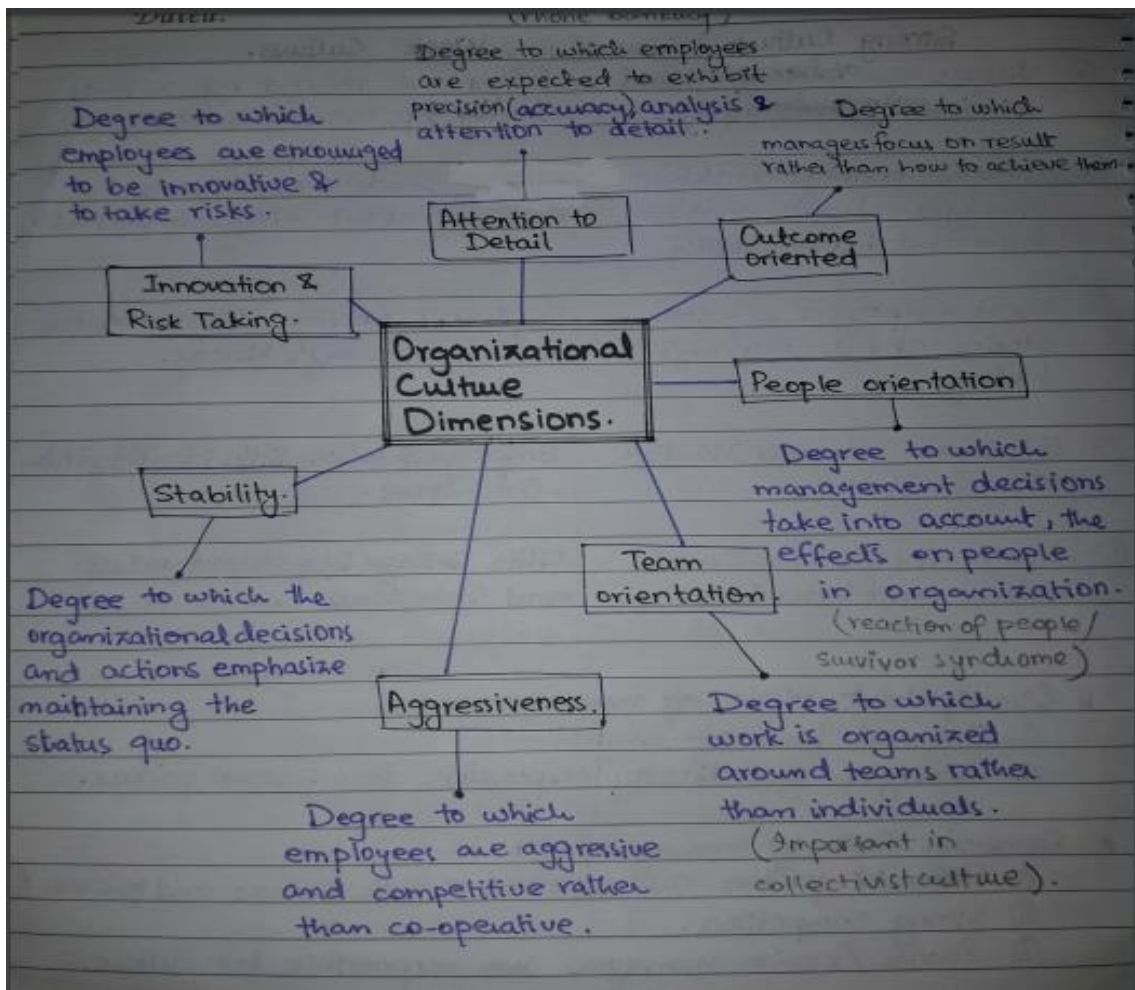 Degree to which employees
are expected to exhibit
precision(accuracy), analysis &
attention to detail.
Degree to which
employees are encouraged
to be innovative &
to take risks.
Degree to which
managers focus on result
rather than how to achieve them.
Attention to
Detail
Outcome
oriented
Innovation &
Risk Taking.
Organizational
Culture
Dimensions.
People orientation
Degree to which
management decisions
take into account, the
effects on people
in organization.
(reaction of people/
survivor syndrome)
Stability.
Degree to which the
organizational decisions
and actions emphasize
maintaining the
status quo.
Team
orientation.
Degree to which
work is organized
around teams rather
than individuals.
(Important in
collectivist culture).
Aggressiveness.
Degree to which
employees are aggressive
and competitive rather
than co-operative.